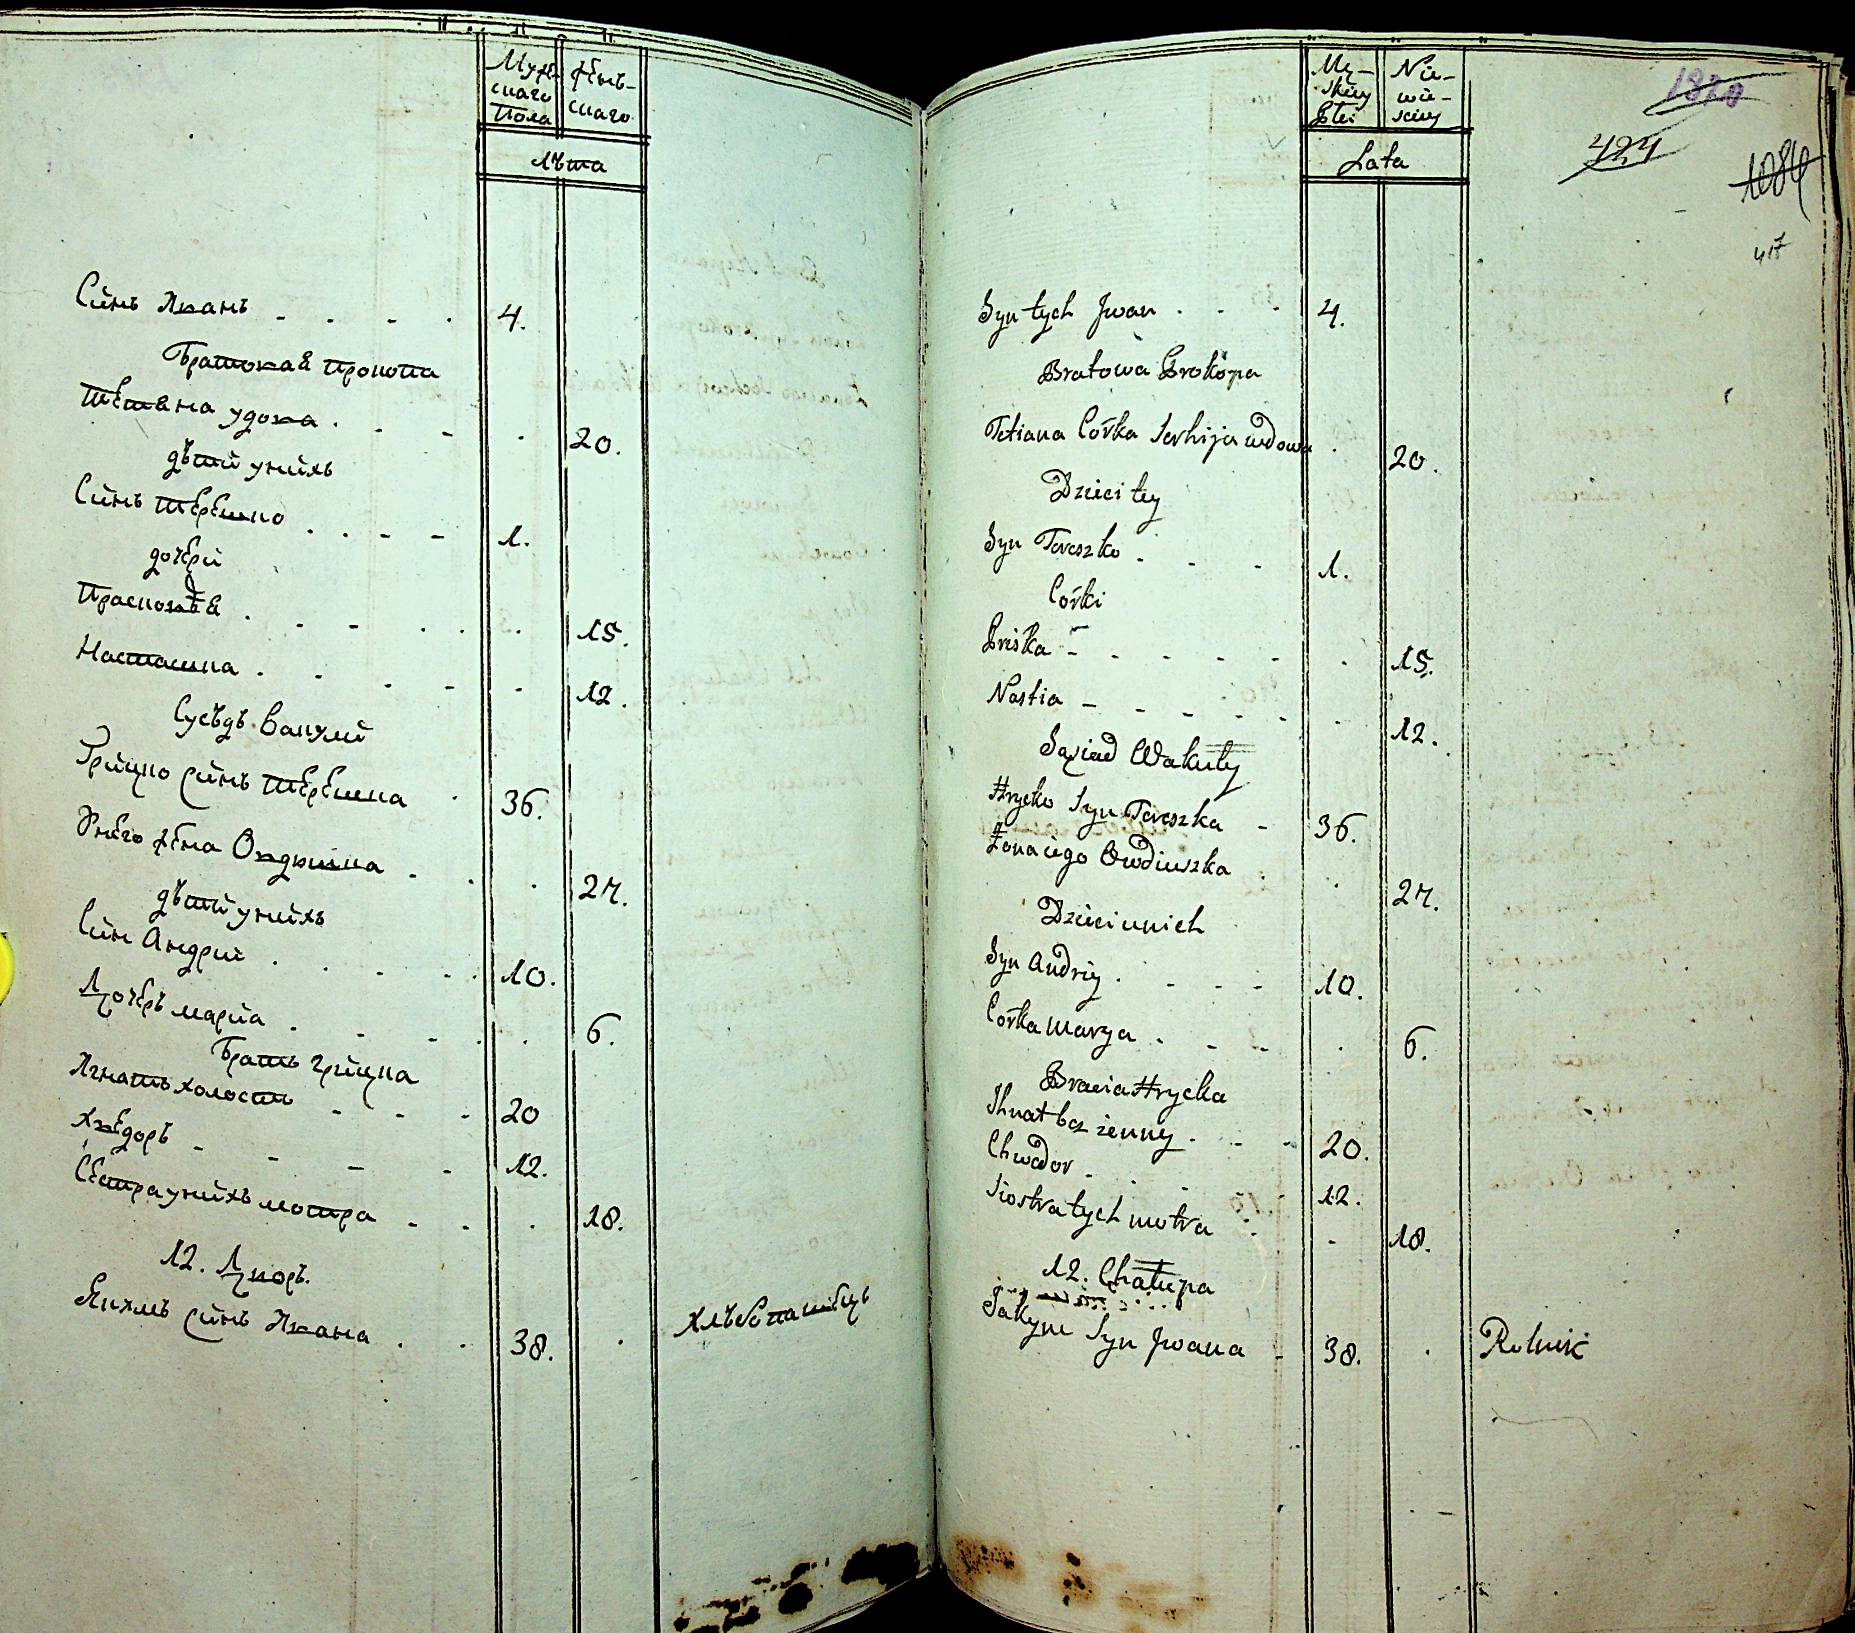 Мужескаго Пола
Женьскаго
лѣта
Синь Иванъ 4.
Братовая Прокопа
Тетяна удова 20.
дѣтй унихъ
Синь Терешко 1.
дочери
Прасковѣя 15.
Насташка 12.
Сусѣдъ Вакулй
Грйцко синь Терешка 36.
Унего жена Овдюшка 27.
дѣтй унйхъ
Син Андрйй 10.
Дочерь марйа 6.
Братъ грйцка
Игнатъ холостй 20
Хведоръ 12.
Сестра унйхъ мотра 18.
12. Дворъ.
Якимъ синь Ивана 38. хлѣбопашецъ
Męskiey Płci
Niewieskiey
Lata
1820
424
1084
417
Syn tych Jwan 4.
Bratowa Prokopa
Tetiana Córka Serhija wdowa 20.
Dzieci tey
Syn Tereszko 1.
Córki
Priska 15.
Nastia 12.
Sąsiad Wakuły
Hrycko Syn Tereszka 36.
Żona iego Owdiuszka 27.
Dzieci unich
Syn Andriy 10.
Córka Marya 6.
Bracia Hrycka
Jhnat bez żenny 20.
Chwedor 12.
Siostra tych motra 18.
12. Chałupa
Jakym Syn Jwana 38. Rolnik